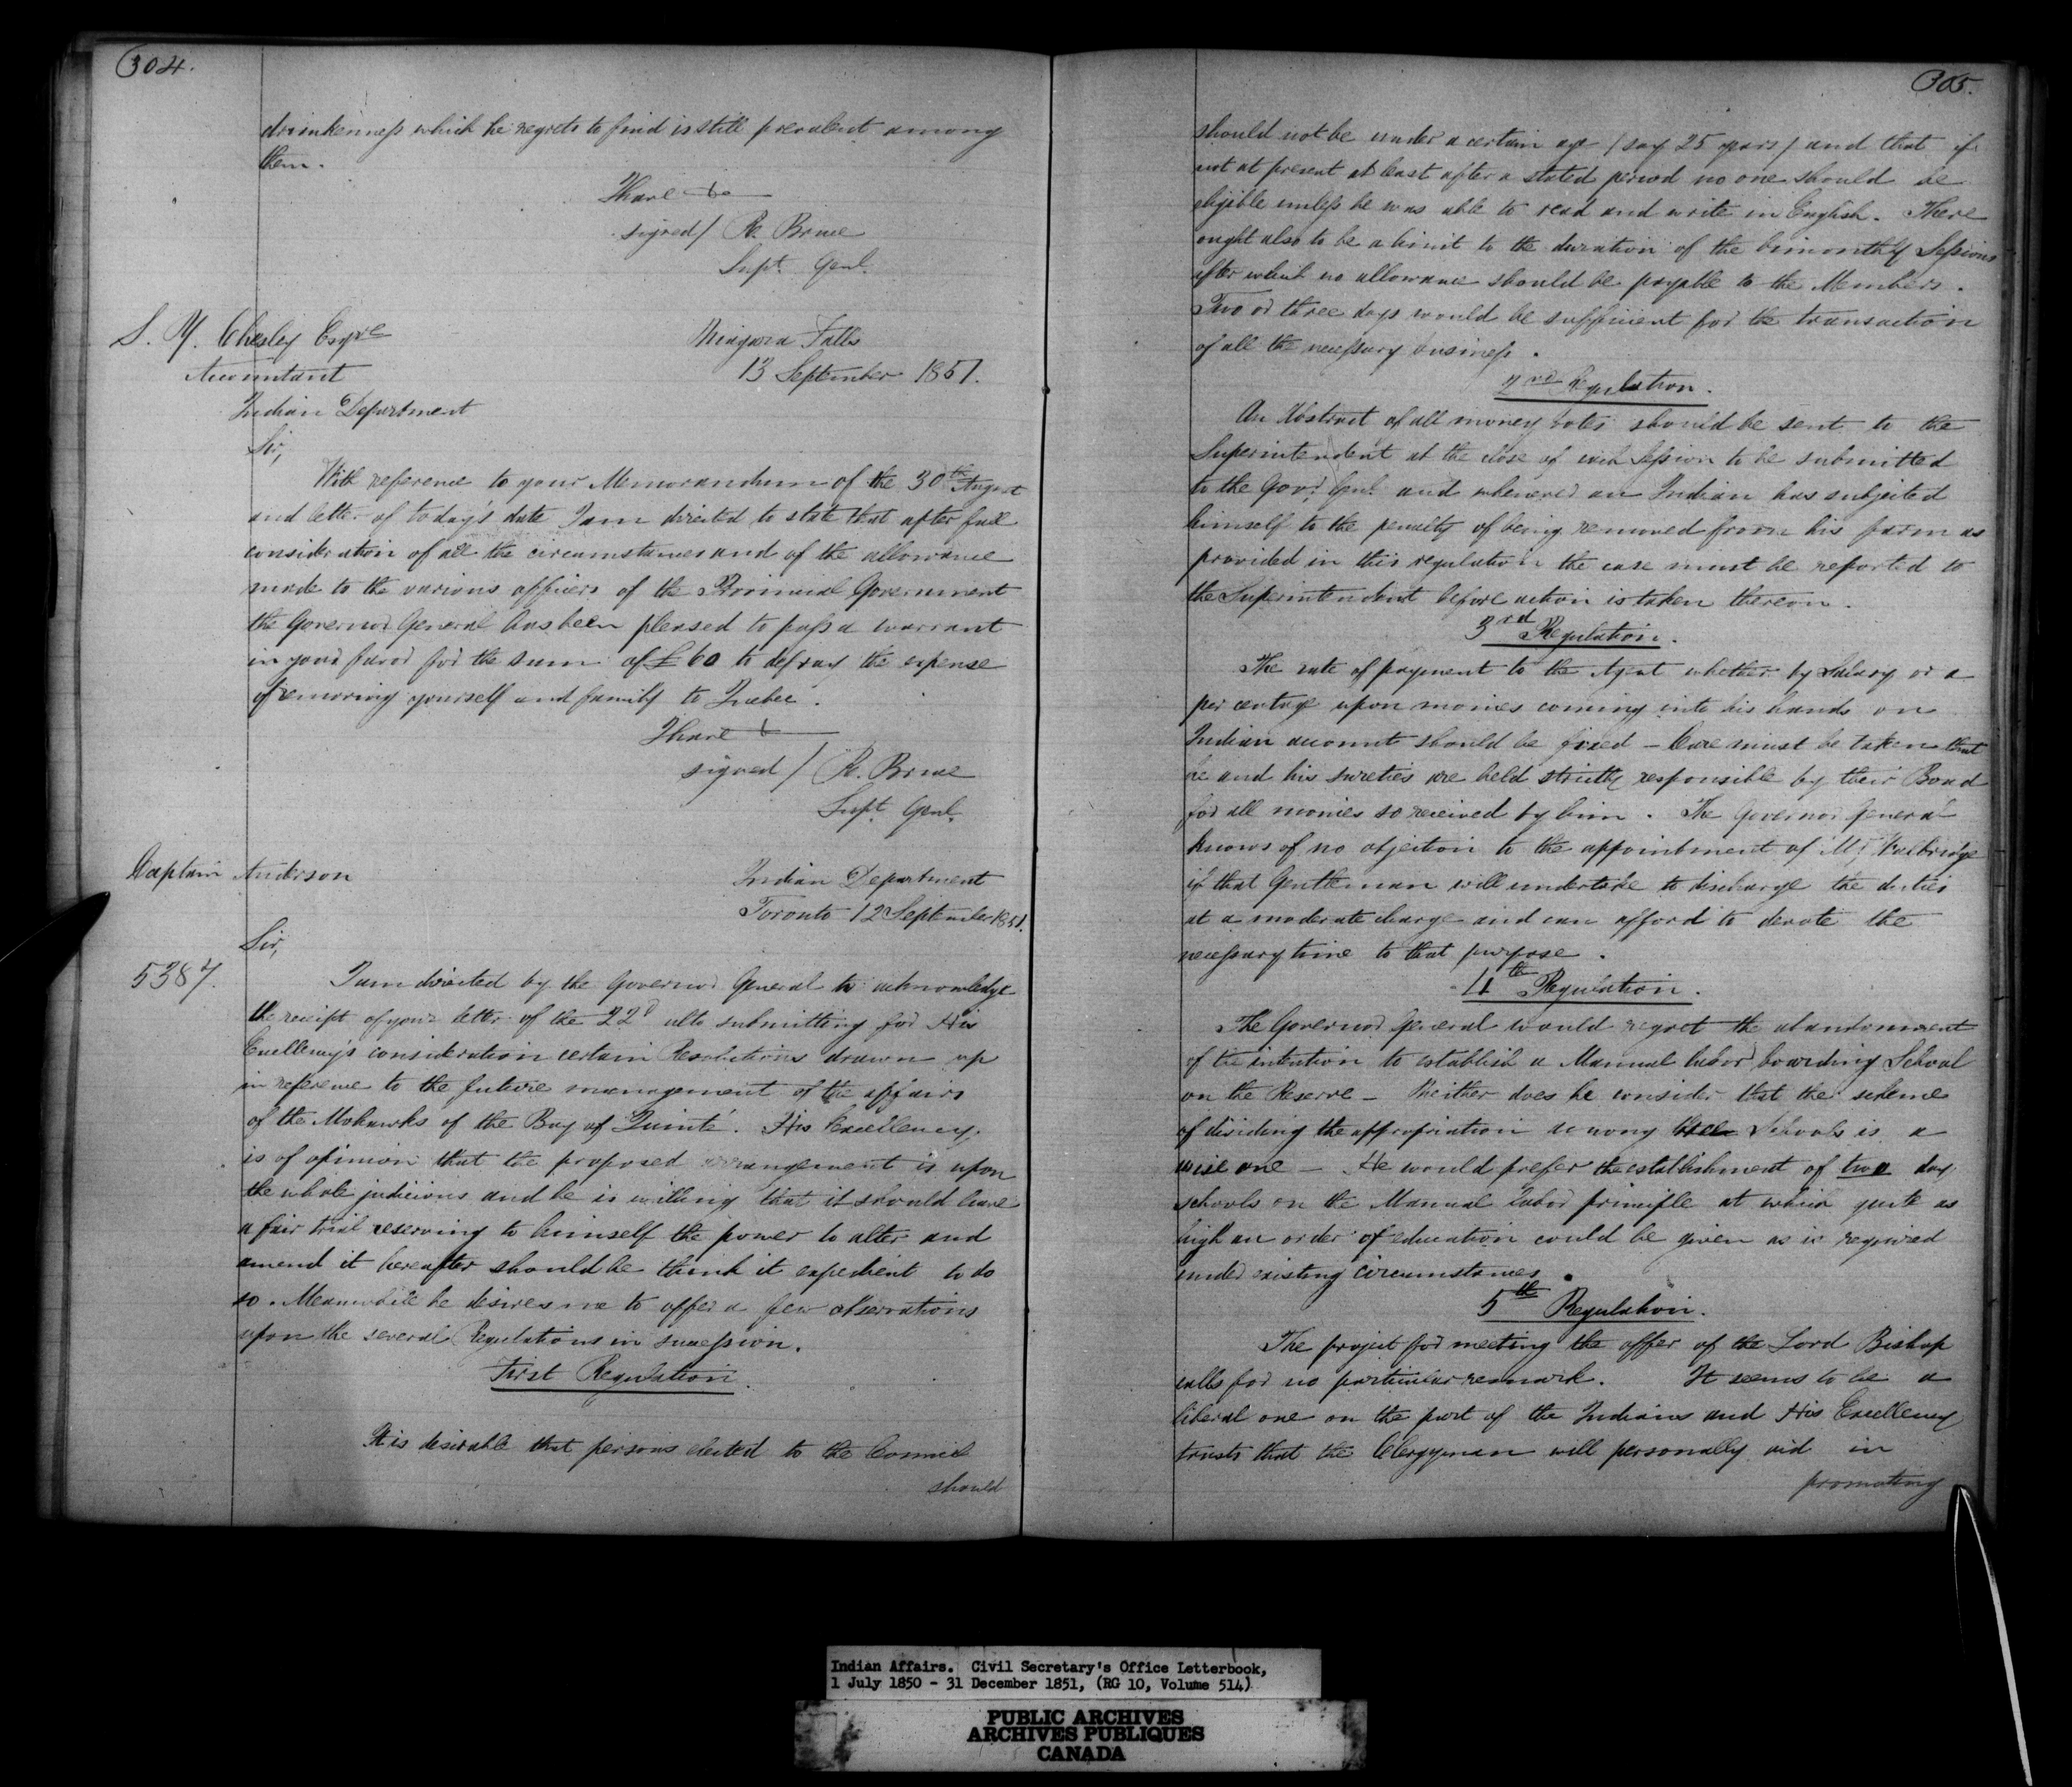 304.
drunkenness which he regrets to find is still prevalent among
them.
I have &c
signed / R. Bruce
Supt. Genl.
S. Y. Chesley Esqre
Accountant
Indian Department
Niagara Falls
13 September 1851.
Sir,
With reference to your Memorandum of the 30th August
and letter of today's date I am directed to state that after full
consideration of all the circumstances and of the allowance
made to the various officers of the Provincial Government
the Governor General has been pleased to pass a warrant
in your favor for the sum of £60 to defray the expense
of removing yourself and family to Quebec.
I have &
signed / R. Bruce
Supt. Genl.
Captain Anderson
Indian Department
Toronto 12 September 1851.
Sir,
5387.
I am directed by the Governor General to acknowledge
the receipt of your letter of the 22d ulto submitting for His
Excellency's consideration certain Resolutions drawn up
in reference to the future management of the affairs
of the Mohawks of the Bay of Quinté. His Excellency
is of opinion that the proposed arrangement is upon
the whole judicious and he is willing that it should have
a fair trial reserving to himself the power to alter and
amend it hereafter should he think it expedient to do
so. Meanwhile he desires me to offer a few observations
upon the several Regulations in succession.
First Regulation.
It is desirable that persons elected to the Council
should
305.
should not be under a certain age (say 25 years) and that if
not at present at least after a stated period no one should be
eligible unless he was able to read and write in English. There
ought also to be a limit to the duration of the bimonthly Sessions
after which no allowance should be payable to the Members.
Two or three days would be sufficient for the transaction
of all the necessary business.
2nd Regulation.
An Abstract of all money votes should be sent to the
Superintendent at the close of each Session to be submitted
to the Govr. Genl. and whenever an Indian has subjected
himself to the penalty of being removed from his farm as
provided in this regulation the case must be reported to
the Superintendent before action is taken thereon.
3rd Regulation.
The rate of payment to the Agent whether by Salary or a
per centage upon monies coming into his hands on
Indian account should be fixed – Care must be taken that
he and his sureties are held strictly responsible by their Bond
for all monies so received by him. The Governor General
knows of no objection to the appointment of Mr. Wallbridge
if that Gentleman will undertake to discharge the duties
at a moderate charge and can afford to devote the
necessary time to that purpose.
4th Regulation.
The Governor General would regret the abandonment
of the intention to establish a Manual labor boarding School
on the Reserve – Neither does he consider that the scheme
of dividing the appropriation among three Schools is a
wise one – He would prefer the establishment of two day
schools on the Manual labor principle at which quite as
high an order of education could be given as is required
under existing circumstances.
5th Regulation.
The project for meeting the offer of the Lord Bishop
calls for no particular remark. It seems to be a
liberal one on the part of the Indians and His Excellency
trusts that the Clergyman will personally aid in
promoting
Indian Affairs. Civil Secretary's Office Letterbook,
1 July 1850 - 31 December 1851, (RG 10, Volume 514)
PUBLIC ARCHIVES
ARCHIVES PUBLIQUES
CANADA